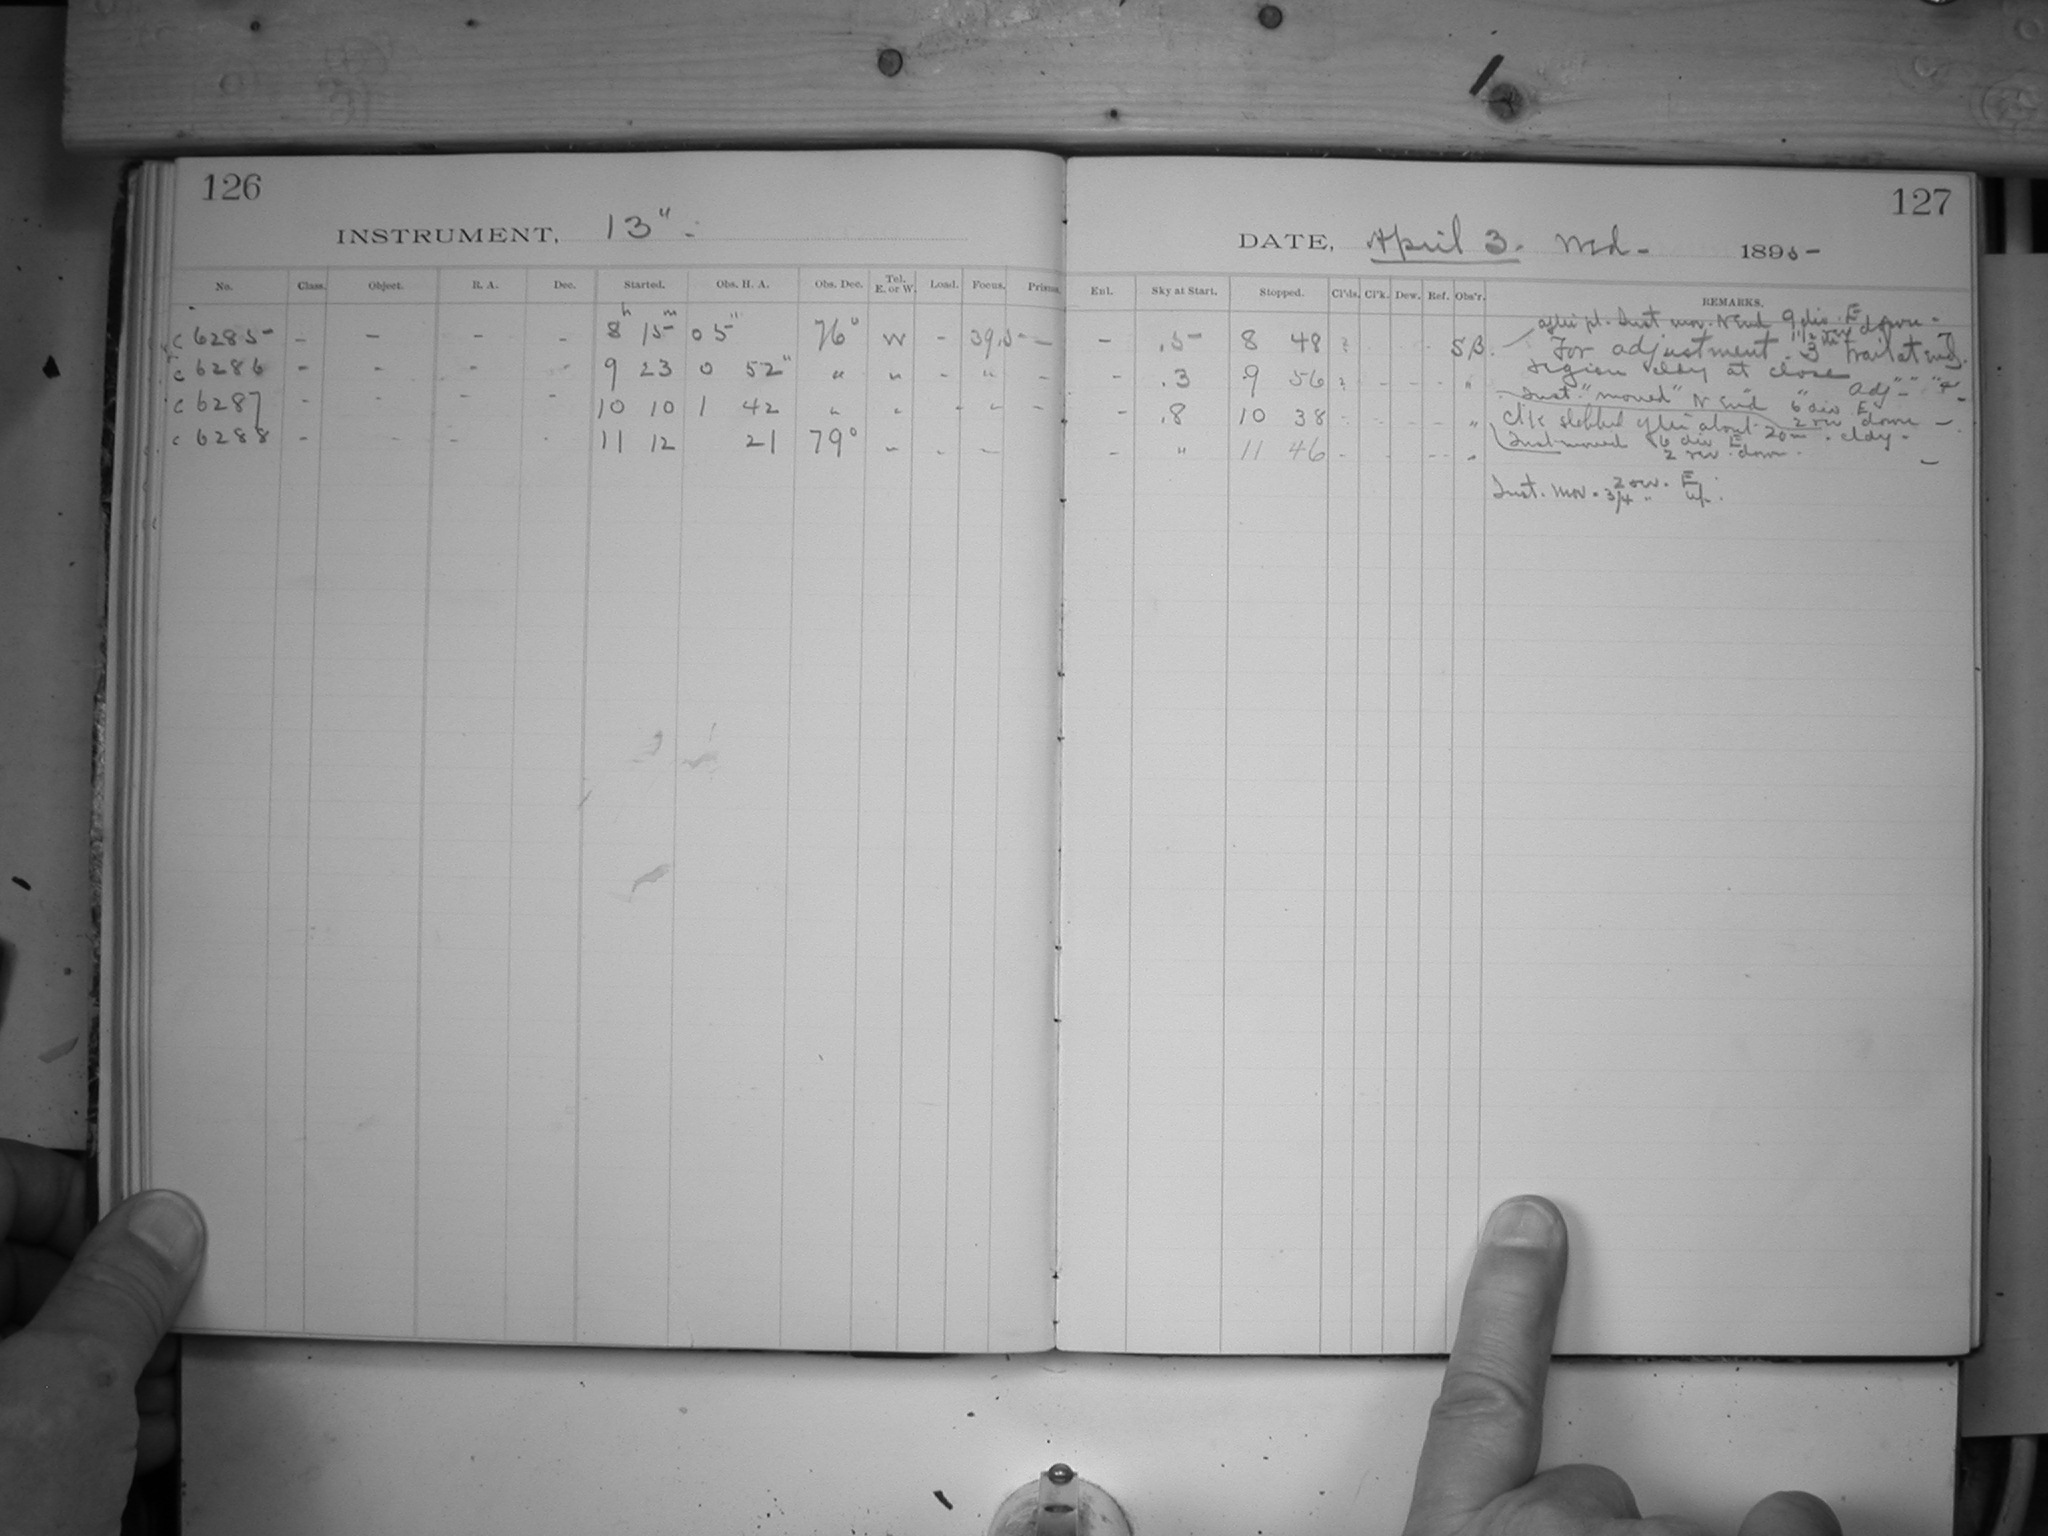 126
INSTRUMENT, 13" -
No. Class. Object. R. A. Dec. Started. Obs. H. A. Obs. Dec. Tel. E. or W. Load. Focus. Prisms.
h m "
c 6285 - - - - 8 15 0 5 76° W - 39.5 -
c 6286 - - - - 9 23 0 52 " " - " -
c 6287 - - - - 10 10 1 42 " " - " -
c 6288 - - - - 11 12 21 79° " - -
127
DATE, April 3. Wed - 1895 -
Enl. Sky at Start. Stopped. Cl'ds. Cl'k. Dew. Ref. Obs'r. REMARKS.
- .5 8 48 ? - SB.
- .3 9 56 ? - - - "
- .8 10 38 - - - - "
- " 11 46 - - - - "
after pl. Inst. mov. N End 9 div. E
1 1/2 rev down -
For adjustment. 3rd trail at end.
region cldy at close Adj - " "
Inst. "moved" N End 6 div E.
2 rev down -
clk stopped after about 20m. cldy -
Inst moved 6 div E
2 rev. down -
Inst. mov. 2 rev. E
3/4 " up.